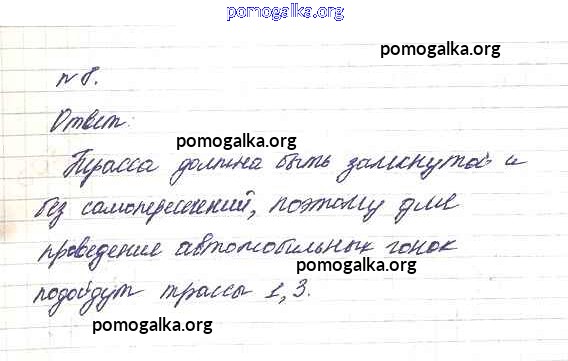 pomogalka.org
pomogalka.org
№ 8.
Ответ:
pomogalka.org
Трасса должна быть замкнутой и
без самопересечений, поэтому для
проведение автомобильных гонок
pomogalka.org
подойдут трассы 1, 3.
pomogalka.org